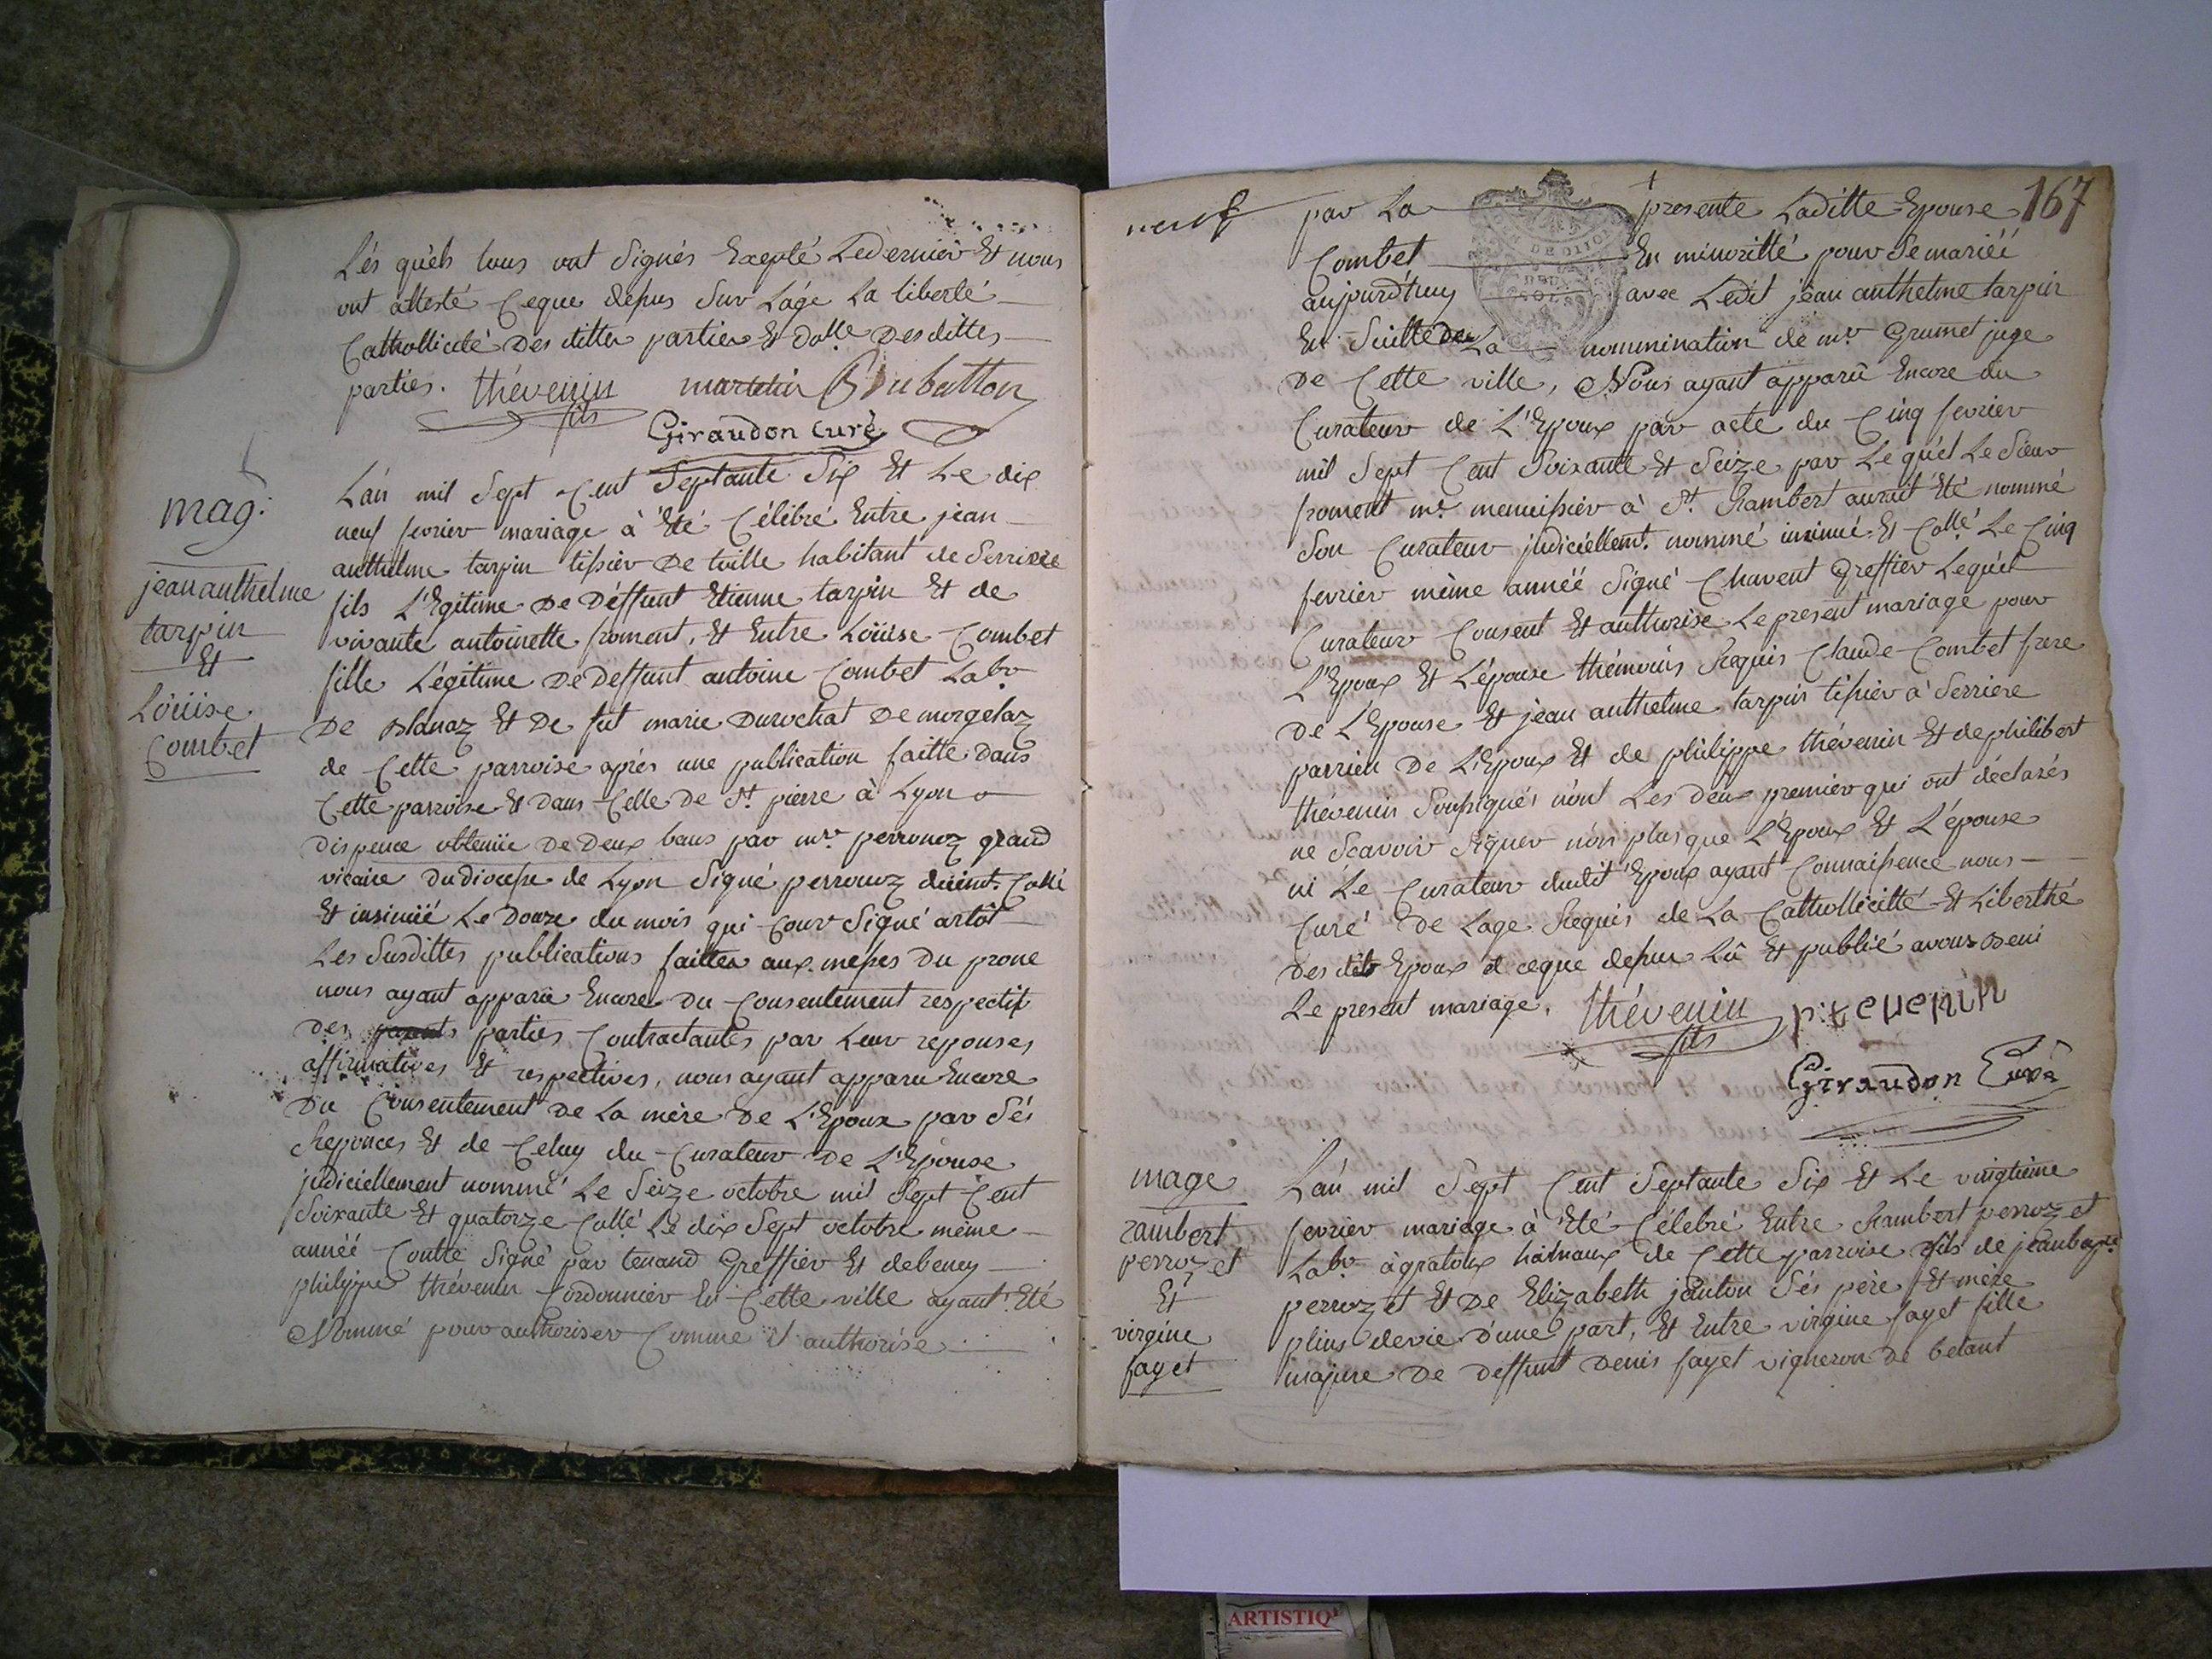 Lés quéls tous ont Signés Exepté Ledernier Et nous
ont attesté Ceque depus Sur Lage La liberté
Catholicité Des dittes parties Et dolle Desdittes
parties. thévenin fils Dubatton
Giraudon curé
mag:
jean anthelme
tarpin
Et
Löüise
Combet
L'an mil Sept Cent Septante Six Et Le dix
neuf fevrier mariage à Eté Célébré Entre jean
anthelme tarpin tissier De toille habitant de Serriere
fils L'Egitime De Déffunt Etienne tarpin Et de
vivante antoinette froment, Et Entre Loüise Combet
fille Légitime De Deffunt antoine Combet Labr
De blanaz Et De fut marie Durochat De morgelaz
de Cette parroise aprés une publication faitte dans
Cette parroise Et dans Celle de St. pierre à Lyon
Dispence obtenüe De Deux bans par mr. perronez grand
vicaire du diocese de Lyon Signé perronez düemt. Collé
Et insinüé Le Douze du mois qui Cour Signé artôt
Les Susdittes publications faittes aux messes Du prone
nous ayant apparu Encore Du Consentement respectif
Des parties Contractantes par Leur reponses
affirmatives Et respectives, nous ayant apparu Encore
Du Consentement De La mère De L'Epoux par Sés
Reponces Et de Celuy du Curateur De L'Epouse
judiciellement nommé Le Seize octobre mil Sept Cent
Soixante Et quatorze Collé Le dix Sept octobre même
annéé Contre Signé par tenand Greffier Et debeney
philippe thévenin Cordonnier En Cette ville ayant Eté
Nommé pour authoriser Comme il authorise
neuf
167
par La presente Laditte Epouse
Combet En minoritté pour Se mariéé
aujourd'huy avec Ledit jean anthelme tarpin
En Suitte De La nommination de mr. Grumet juge
De Cette ville, Nous ayant apparû Encore du
Curateur de L'Epoux par acte du Cinq fevrier
mil Sept Cent Soixante Et Seize par Lequél Le Sieur
froment me. menuisier à St. Rambert auroit Eté nommé
Son Curateur judiciellemt. nommé insinué Et Collé Le Cinq
fevrier même annéé Signé Chavent Greffier Lequél
Curateur Consent Et authorise Le present mariage pour
L'Epoux Et L'épouse thémoins Requis Claude Combet frere
De L'Epouse Et jean anthelme tarpin tissier à Serriere
parrien De L'Epoux Et de philippe thévenin Et de philibert
thévenin Soussignés n'ont Les deux premier qui ont déclarés
ne Scavoir Signer non plus que L'Epoux Et L'épouse
ni Le Curateur dudit Epoux ayant Connaissence nous
Curé De Lage Requis de La Catholicitté Et Liberthé
Des dits Epoux et ceque dessus Lû Et publié avons beni
Le present mariage. thévenin fils p:tevenin
Giraudon Curé
mage
rambert
perrozet
Et
virgine
fayet
L'an mil Sept Cent Septante Six Et Le vingtieme
fevrier mariage à Eté Célebré Entre Rambert perrozet
Labr. à gratoux haimaux de Cette parroise fils de jean bapte.
perrozet Et De Elizabeth janton Sés père Et mère
plins de vie d'une part, Et Entre virgine fayet fille
majure De Deffunt Denis fayet vigneron de betant
ARTISTIQ